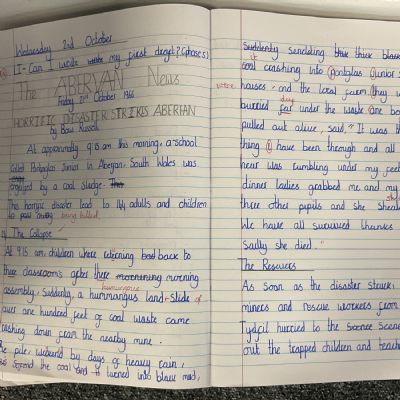 Wednesday 2nd October
I-Can I write my first draft? (phase 5)
The ABERVAN News
Friday 21st October 1966
HORRIFIC DISASTER STRIKES ABERFAN
by Beau Russell
At approximatly 9:15 am this morning, a school
called Pantglas Junior in Aberfan, South Wales was
engulfed by a coal sludge.
This horrific disaster lead to 144 adults and children
to being killed.
The Collapse
At 9:15 am children where retering back to
there classrooms after there morening
assembly, suddenly, a hummungus land-slide of
humungous
over one hundred feet of coal waste came
crashing down from the nearby mine.
the pile, weakend by days of heavy rain,
the coal and it turned into black mud,
Suddenly sencleding thick black
coal crashing into Pantglas Junior
houses and the local farm, they
where
burried under the waste one
pulled out alive, said, "It was th
thing I have been through and all
hear was rumbling under my feet
dinner ladies grabbed me and my
three other pupils and she
We have all thanks
sadly she died."
The Rescuers
As soon as the disaster struck,
miners and rescue workers from
Tydgil hurried to the Scene
out the trapped children and teach